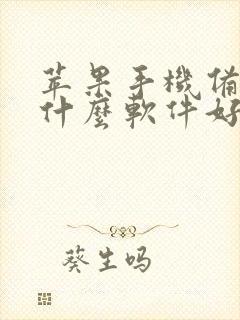 苹果手機備
什麼軟件好
葵生吗